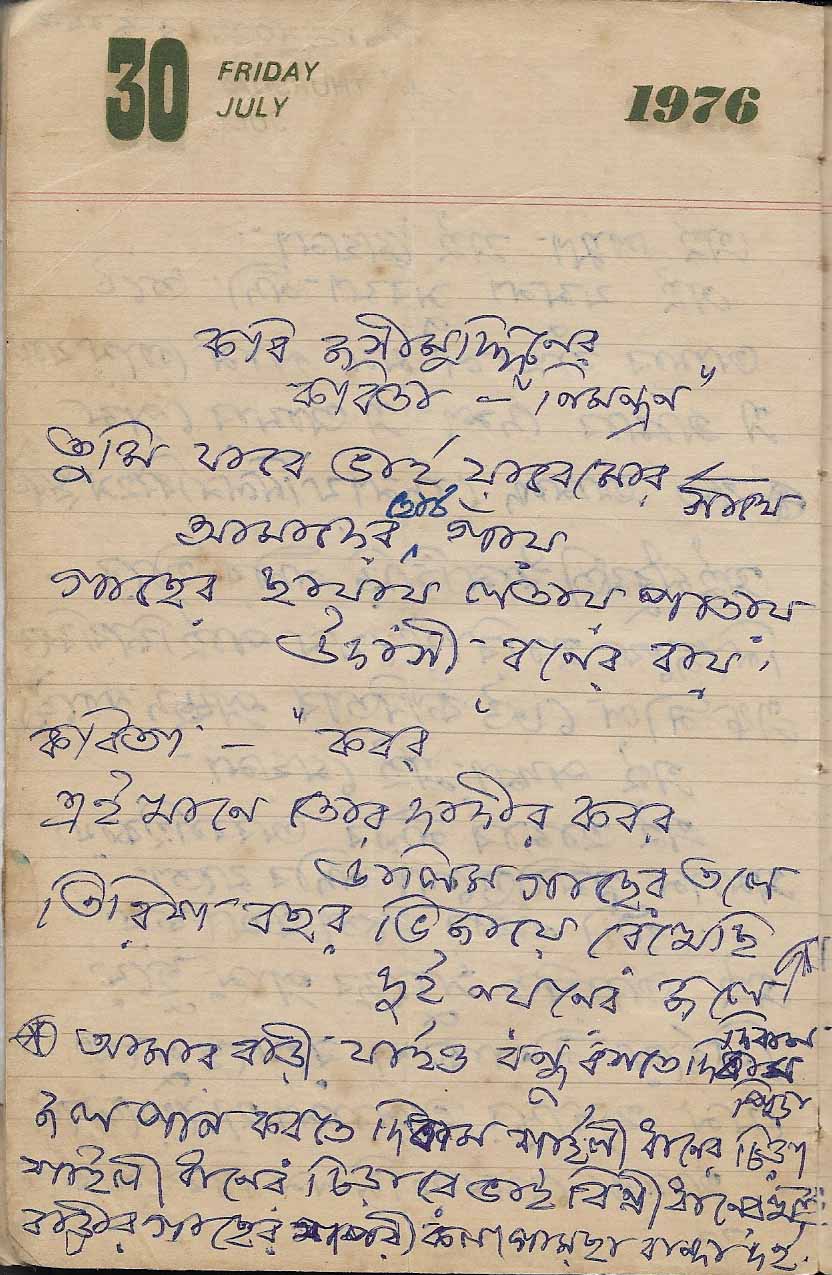 30 FRIDAY JULY 1976
কবি জসীমুদ্দিনের
কবিতা - "নিমন্ত্রণ"
তুমি যাবে ভাই যাবে মোর সাথে
আমাদের ছোট গাঁয়
গাছের ছায়ায় লতায় পাতায়
উদাসী বনের বায়।
কবিতা - "কবর"
এইখানে তোর দাদীর কবর
ডালিম গাছের তলে
তিরিশ বছর ভিজায়ে রেখেছি
দুই নয়নের জলে
আমার বাড়ী যাইও বন্ধু বসতে দিবাম পিড়া
জল পান করতে দিবাম শাইলী ধানের চিড়া
শাইলী ধানের চিড়ারে ভাই বিন্নী ধানের খই
বাড়ীর গাছের কলা গামছা বান্ধা দই।